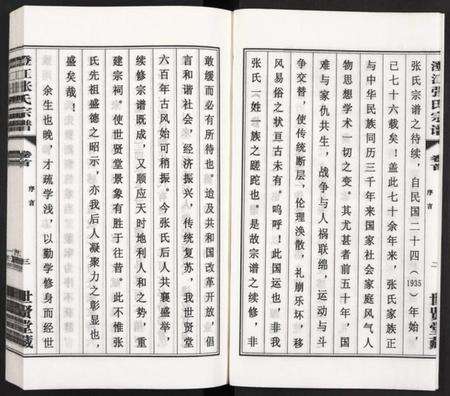 澄江张氏宗谱
卷首
序言
二
世贤堂藏
张氏宗谱之待续，自民国二十四（1935）年始，
已七十六载矣！盖此七十余年来，张氏家族正
与中华民族同历三千年来国家社会家庭风气人
物思想学术一切之变。其尤甚者前五十年，国
难与家仇共生，战争与人祸联绵，运动与斗
争交替，使传统断层，伦理涣散，礼崩乐坏，移
风易俗之状亘古未有，呜呼！此国运也，非我
张氏一姓一族之蹉跎也。是故宗谱之续修，非
敢缓而必有所待也。迨及共和国改革开放，倡
言和谐社会，经济振兴，传统复苏，我世贤堂
六百年古风始可稍振。今张氏后人共襄盛举，
续修宗谱既成，又顺应天时地利人和之势，重
建宗祠，使世贤堂景象有胜于往昔。此不惟张
氏先祖盛德之昭示，亦我后人凝聚力之彰显也，
盛矣哉！
余生也晚，才疏学浅，以勤学修身而经世
澄江张氏宗谱
卷首
序言
三
世贤堂藏